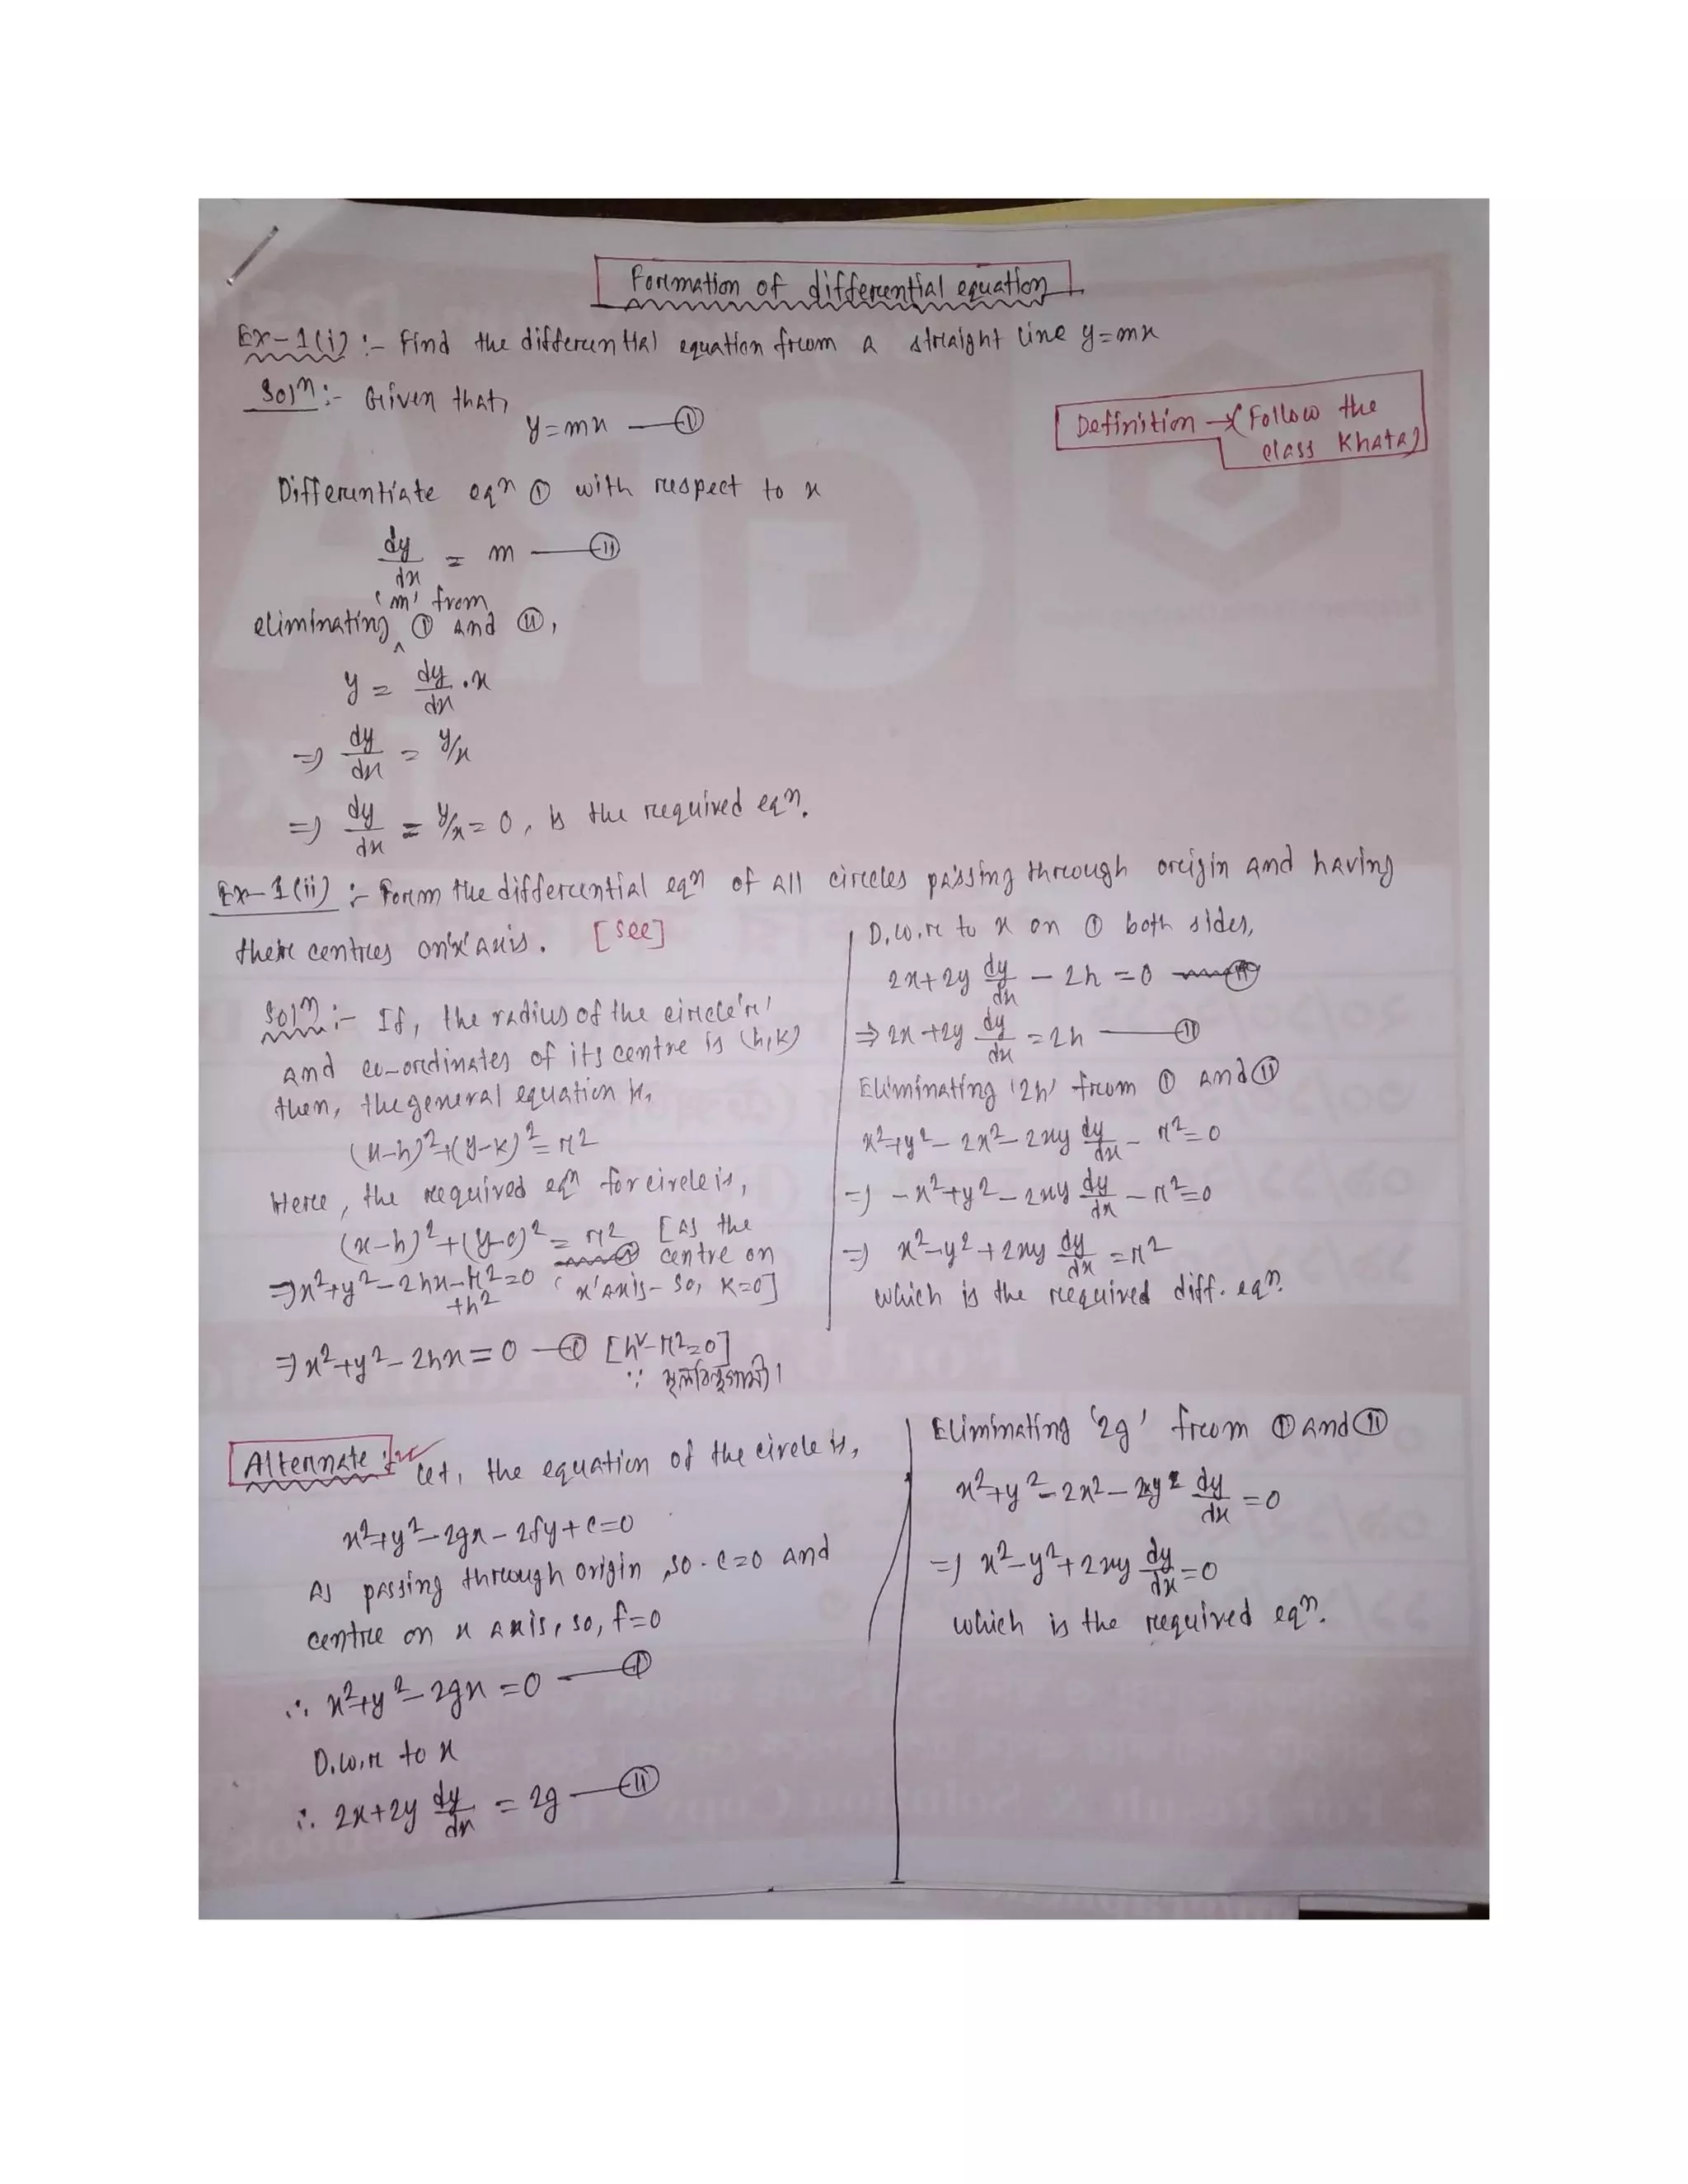 Formation of differential equation
Ex-1(i) :- Find the differential equation from a straight line y=mx
Solⁿ:- Given that,
y=mx — (I)
Definition → (Follow the
class Khata)
Differentiate eqⁿ (I) with respect to x
dy/dx = m — (II)
eliminating 'm' from (I) and (II),
y = dy/dx . x
⇒ dy/dx = y/x
⇒ dy/dx = y/x = 0, is the required eqⁿ.
Ex-1(ii) :- Form the differential eqⁿ of all circles passing through origin and having
their centres on 'x' axis. [See]
Solⁿ:- If, the radius of the circle 'r'
and co-ordinates of its centre is (h,k)
then, the general equation is,
(x-h)²+(y-k)²=r²
Here, the required eqⁿ for circle is,
(x-h)²+(y-0)² = r² [As the
centre on
x'axis- so, k=0]
⇒x²+y²-2hx-r²=0
+h²
⇒x²+y²-2hx=0 — (I) [h²-r²=0]
∵ মূলবিন্দুগামী।
D.w.r to x on (I) both sides,
2x+2y dy/dx - 2h =0
⇒ 2x+2y dy/dx = 2h — (II)
Eliminating '2h' from (I) and (II)
x²+y²-2x²-2xy dy/dx - r²=0
⇒ -x²+y²-2xy dy/dx - r²=0
⇒ x²-y²+2xy dy/dx = r²
which is the required diff. eqⁿ.
Alternate :- Let, the equation of the circle is,
x²+y²-2gx-2fy+c=0
As passing through origin, so. c=0 and
centre on x axis, so, f=0
∴ x²+y²-2gx=0 — (I)
D.w.r to x
∴ 2x+2y dy/dx = 2g — (II)
Eliminating '2g' from (I) and (II)
x²+y²-2x²-2xy dy/dx =0
⇒ x²-y²+2xy dy/dx=0
which is the required eqⁿ.